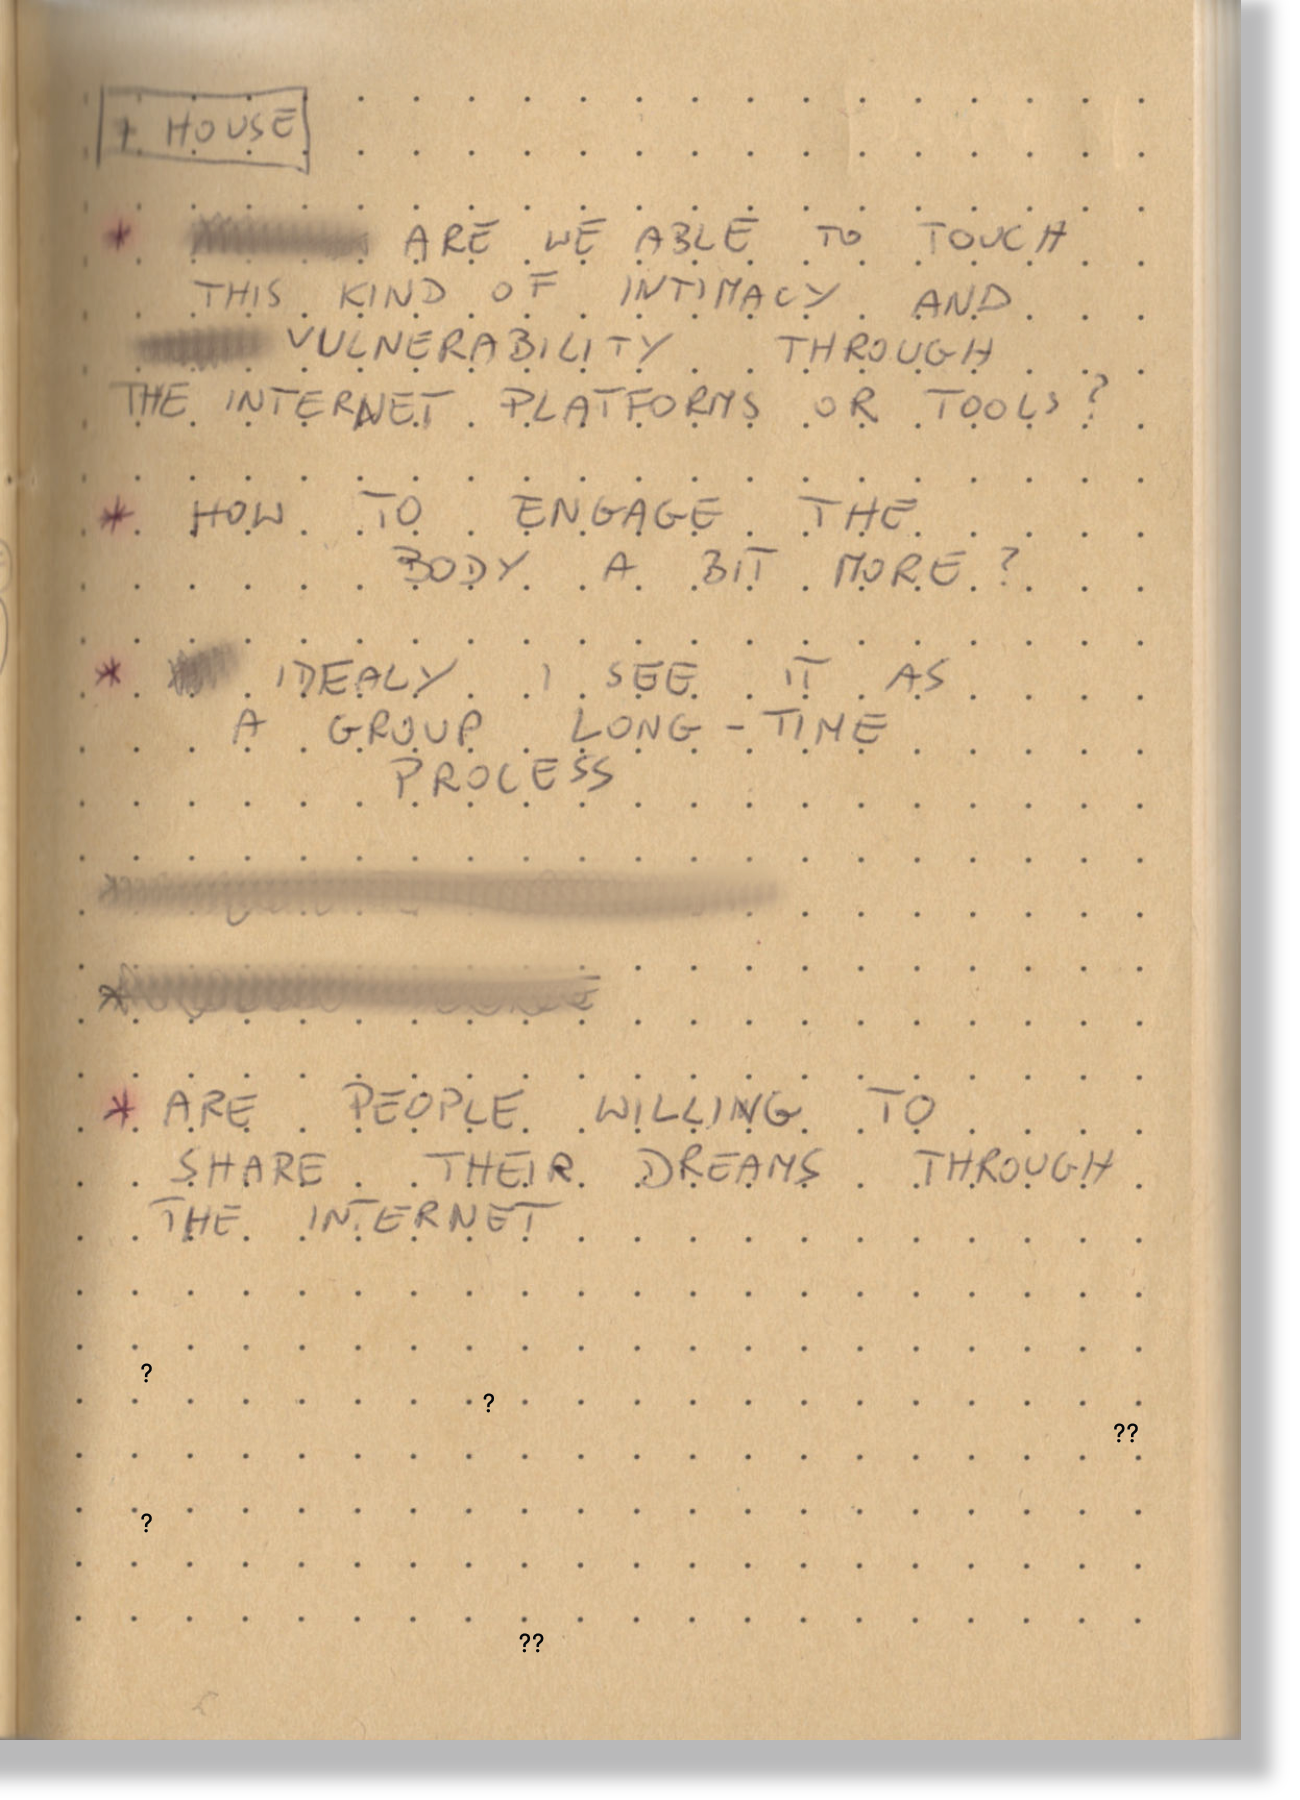 HOUSE
* ARE WE ABLE TO TOUCH
THIS KIND OF INTIMACY AND
VULNERABILITY THROUGH
THE INTERNET PLATFORMS OR TOOLS?
* HOW TO ENGAGE THE
BODY A BIT MORE?
* IDEALY I SEE IT AS
A GROUP LONG-TIME
PROCESS
* ARE PEOPLE WILLING TO
SHARE THEIR DREAMS THROUGH
THE INTERNET
?
?
??
?
??